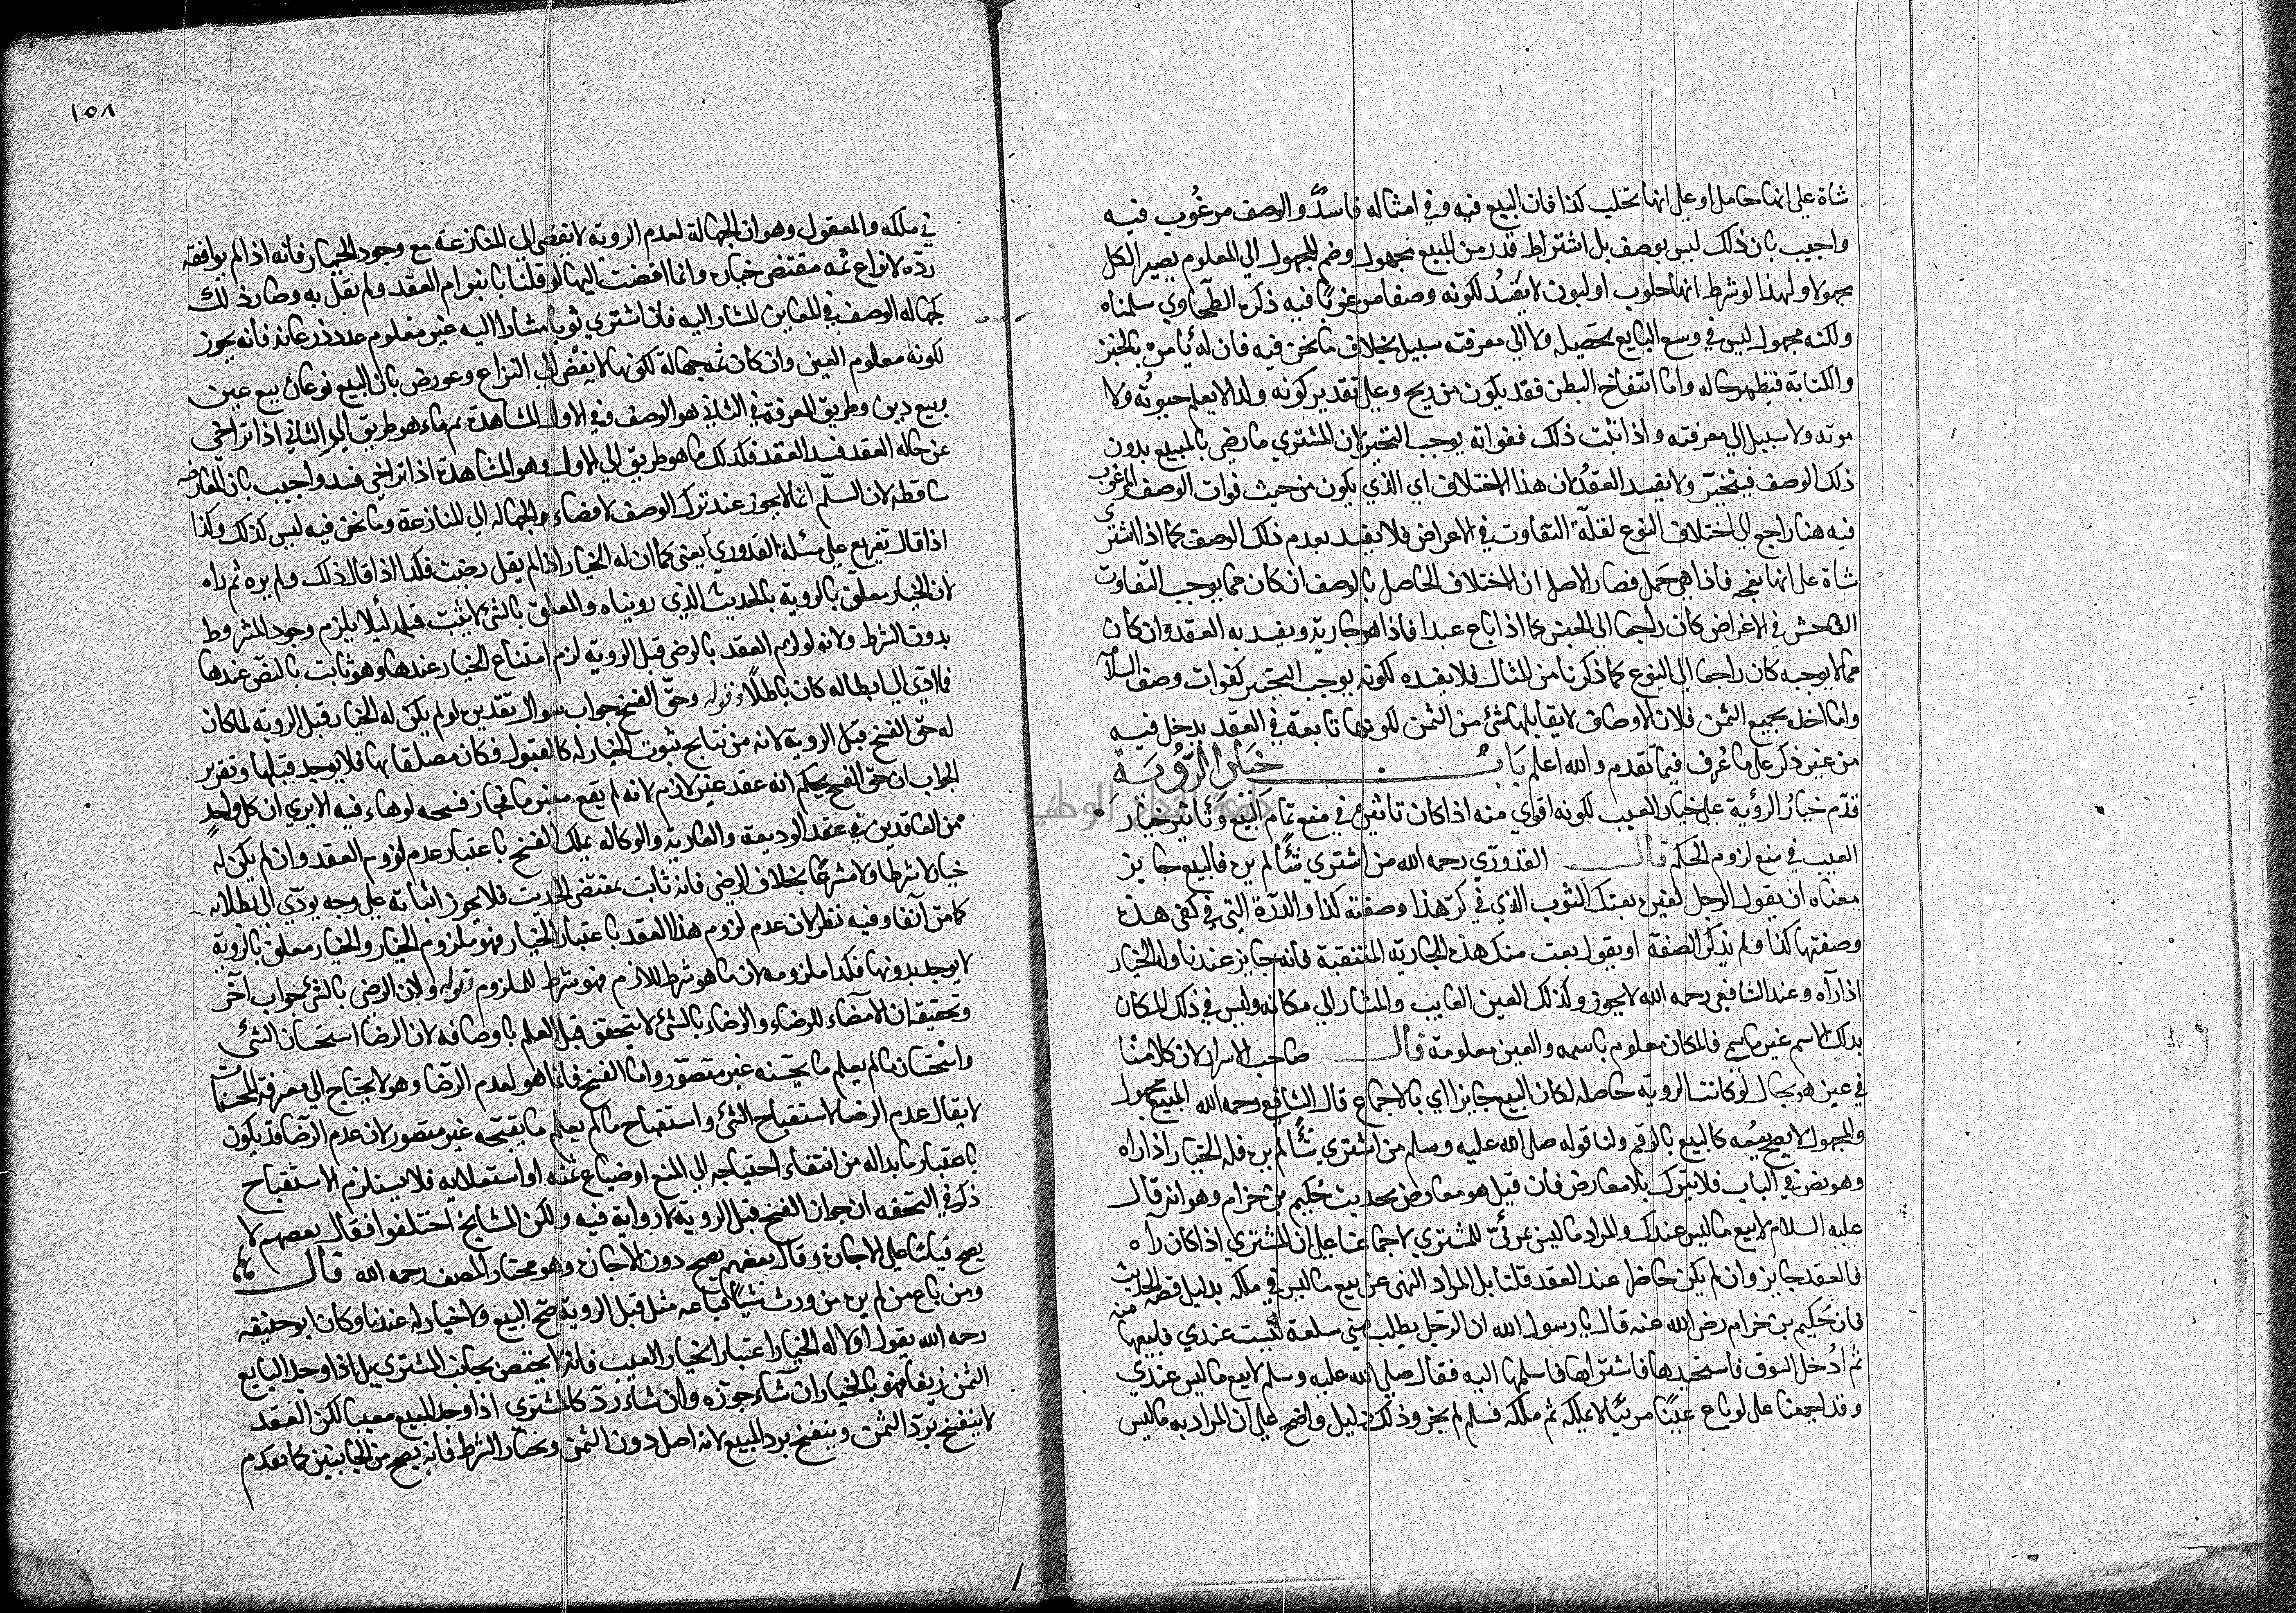 شاة على انها حامل او على انها تحلب كذا فان البيع فيه وفي امثاله فاسد والوصف مرغوب فيه
واجيب بان ذلك ليس بوصف بل اشتراط قدر من المبيع مجهول وضم المجهول الي المعلوم يصير الكل
مجهولا ولهذا لو شرط انها حلوب او لبون لا يفسد لكونه وصفا مرغوبا فيه ذكره الطحاوي سلمناه
ولكنه مجهول ليس في وسع البايع تحصيله ولا الي معرفته سبيل بخلاف ما نحن فيه فان له يامره بالخبز
والكتابة فيظهر حاله واما انتفاخ البطن فقد يكون من ريح وعلى تقدير كونه ولدا لا يعلم حيوته ولا
موته ولا سبيل الي معرفته واذا ثبت ذلك ففواته يوجب التخيير لان المشتري ما رضي بالمبيع بدون
ذلك الوصف فيتخير ولا يفسد العقد لان هذا الاختلاف اي الذي يكون من حيث فوات الوصف المرغوب
فيه هنا راجع الي اختلاف النوع لقلة التفاوت في الاغراض فلا يفسد بعدم ذلك الوصف كما اذا اشترى
شاة على انها نعجه فاذا هي حمل فصار الاصل ان الاختلاف الحاصل بالوصف ان كان مما يوجب التفاوت
الفاحش في الاغراض كان راجعا الي الجنس كما اذا باع عبدا فاذا هو جارية ويفسد به العقد وان كان
مما لا يوجبه كان راجعا الي النوع كما ذكرنا من المثال فلا يفسده لكونه يوجب التخيير كفوات وصف السلامة
واما اخذه بجميع الثمن فلان الاوصاف لا يقابلها شئ من الثمن لكونها تابعة في العقد يدخل فيه
من غير ذكر على ما عرف فيما تقدم والله اعلم باب خيار الرؤية
قدم خيار الرؤية على خيار العيب لكونه اقوي منه اذا كان تاثيره في منع تمام البيع وتاثير خيار
العيب في منع لزوم الحكم قال القدوري رحمه الله من اشتري شئا لم يره فالبيع جايز
معناه ان يقول الرجل لغيره بعتك الثوب الذي في كمي هذا وصفته كذا والدرة التي في كفي هذه
وصفتها كذا ولم يذكر الصفة او يقول بعت منك هذه الجارية المنتقبة فانه جايز عندنا وله الخيار
اذا رآه وعند الشافعي رحمه الله لا يجوز وكذلك العين الغايب والمشار الي مكانه وليس في ذلك المكان
بذلك الاسم غير ما سمي فالمكان معلوم باسمه والعين معلومة قال صاحب الاسرار لان كلامنا
في عين هو بحال لو كانت الروية حاصله لكان البيع جايزا اي بالاجماع قال الشافعي رحمه الله المبيع مجهول
والمجهول لا يصح بيعه كالبيع بالرقم ولنا قوله صلى الله عليه وسلم من اشتري شئا لم يره فله الخيار اذا راه
وهو نص في الباب فلا يترك بلا معارض فان قيل هو معارض بحديث حكيم بن حزام وهو انه قال
عليه السلام لا تبع ما ليس عندك والمراد ما ليس بمرئي للمشتري لاجماعنا على ان المشتري اذا كان راه
فالعقد جايز وان لم يكن حاضرا عند العقد قلنا بل المراد النهي عن بيع ما ليس في ملكه بدليل قصة الحديث
فان حكيم بن حزام رضي الله عنه قال يا رسول الله ان الرجل يطلب مني سلعة ليست عندي فابيعها منه
ثم ادخل السوق فاستجيدها فاشتراها فاسلمها اليه فقال صلى الله عليه وسلم لا تبع ما ليس عندي
وقد اجمعنا على لو باع عينا مرئيا لا يملكه ثم ملكه فسلم لم يجز وذلك دليل واضح على ان المراد به ما ليس
١٥٨
في ملكه والمعقول وهو ان الجهالة لعدم الروية لا يفضي الي المنازعة مع وجود الخيار فانه اذا لم يوافقه
رده لا نزاع ثمه مقتض خياره وانما افضت اليها لو قلنا بانبرام العقد ولم نقل به وصار ذلك
كجهالة الوصف في المعاين المشار اليه فان اشتري ثوبا مشارا اليه غير معلوم عدد ذرعانه فانه يجوز
لكونه معلوم العين وان كان ثمه جهالة لكونها لا يفضي الي النزاع وعورض بان البيع نوعان بيع عين
وبيع دين وطريق المعرفة في الثاني هو الوصف وفي الاول المشاهدة ثم ما هو طريق الي الثاني اذا تراخي
عن حالة العقد فسد العقد فكذلك ما هو طريق الي الاول وهو المشاهدة اذا تراخي فسد واجيب بان المعارضة
ساقطة لان السلم انما لا يجوز عند ترك الوصف لافضاء الجهالة الي المنازعة وما نحن فيه ليس كذلك وكذا
اذا قال تفريع على مسئلة القدوري يعني كما ان له الخيار اذا لم يقل رضيت فكذا اذا قال ذلك ولم يره ثم راه
لان الخيار معلق بالروية بالحديث الذي رويناه والمعلق بالشئ لا يثبت قبله لئلا يلزم وجود المشروط
بدون الشرط ولانه لو لزم العقد بالرضى قبل الروية لزم امتناع الخيار عندها وهو ثابت بالنص عندها
فما ادي الي ابطاله كان باطلا وقوله وحق الفسخ جواب سوال تقديره لو لم يكن له الخيار قبل الروية لما كان
له حق الفسخ قبل الروية لانه من نتايج ثبوت الخيار له كالقبول فكان معلقا بها فلا يوجد قبلها وتقرير
الجواب ان حق الفسخ بحكم انه عقد غير لازم لانه لم يقع منبرما فجاز فسخه لوهاء فيه الا يري ان كل واحد
من العاقدين في عقد الوديعة والعارية والوكالة يملك الفسخ باعتبار عدم لزوم العقد وان لم يكن له
خيار لا شرطا ولا شرعا بخلاف الرضى فانه ثابت بمقتضى الحديث فلا يجوز اثباته على وجه يودي الي بطلانه
كما مر آنفا وفيه نظر لان عدم لزوم هذا العقد باعتبار الخيار فهو ملزوم الخيار والخيار معلق بالروية
لا يوجد بدونها فكذا ملزومه لان ما هو شرط للازم فهو شرط للملزوم وقوله ولان الرضى بالشئ جواب آخر
وتحقيقه ان الامضاء للرضاء والرضاء بالشئ لا يتحقق قبل العلم باوصافه لان الرضا استحسان الشئ
واستحسان ما لم يعلم ما يحسنه غير متصور واما الفسخ فانما هو لعدم الرضا وهو لا يحتاج الي معرفة المحسنات
لا يقال عدم الرضا لاستقباح الشئ واستقباح ما لم يعلم ما يقبحه غير متصور لان عدم الرضا قد يكون
باعتبار ما بدا له من انتفاء احتياجه الي المبيع او ضياع ثمنه او استغلائه فلا يستلزم الاستقباح
ذكر في التحفه ان جواز الفسخ قبل الروية لا رواية فيه ولكن المشايخ اختلفوا فقال بعضهم لا
يصح قياسا على الاجازة وقال بعضهم يصح دون الاجازة وهو مختار المصنف رحمه الله قال
ومن باع من لم يره من ورث شيئا فباعه مثل قبل الروية صح البيع ولا خيار له عندنا وكان ابو حنيفه
رحمه الله يقول اولا له الخيار اعتبارا بخيار العيب فانه لا يختص بجانب المشتري بل اذا وجد البايع
الثمن زيفا فهو بالخيار ان شاء جوزه وان شاء رده كالمشتري اذا وجد المبيع معيبا لكن العقد
لا ينفسخ برد الثمن وينفسخ برد المبيع لانه اصل دون الثمن وخيار الشرط فانه يصح من الجانبين كما تقدم